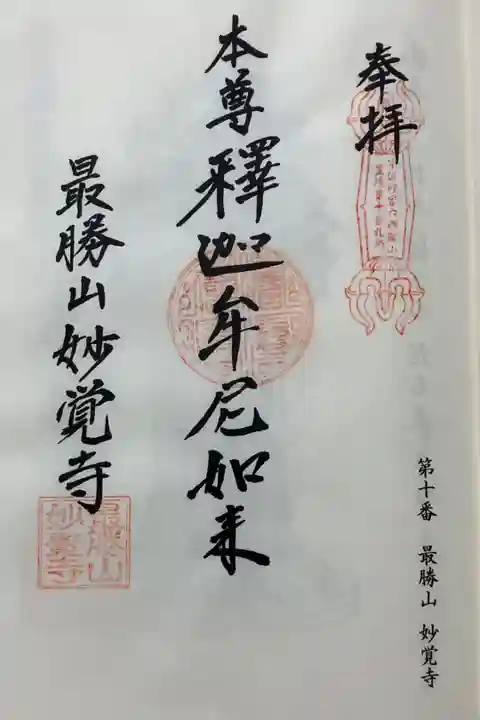 奉拝
本尊釋迦牟尼如来
最勝山妙覚寺
最勝山
妙覺寺
第十番 最勝山 妙覚寺